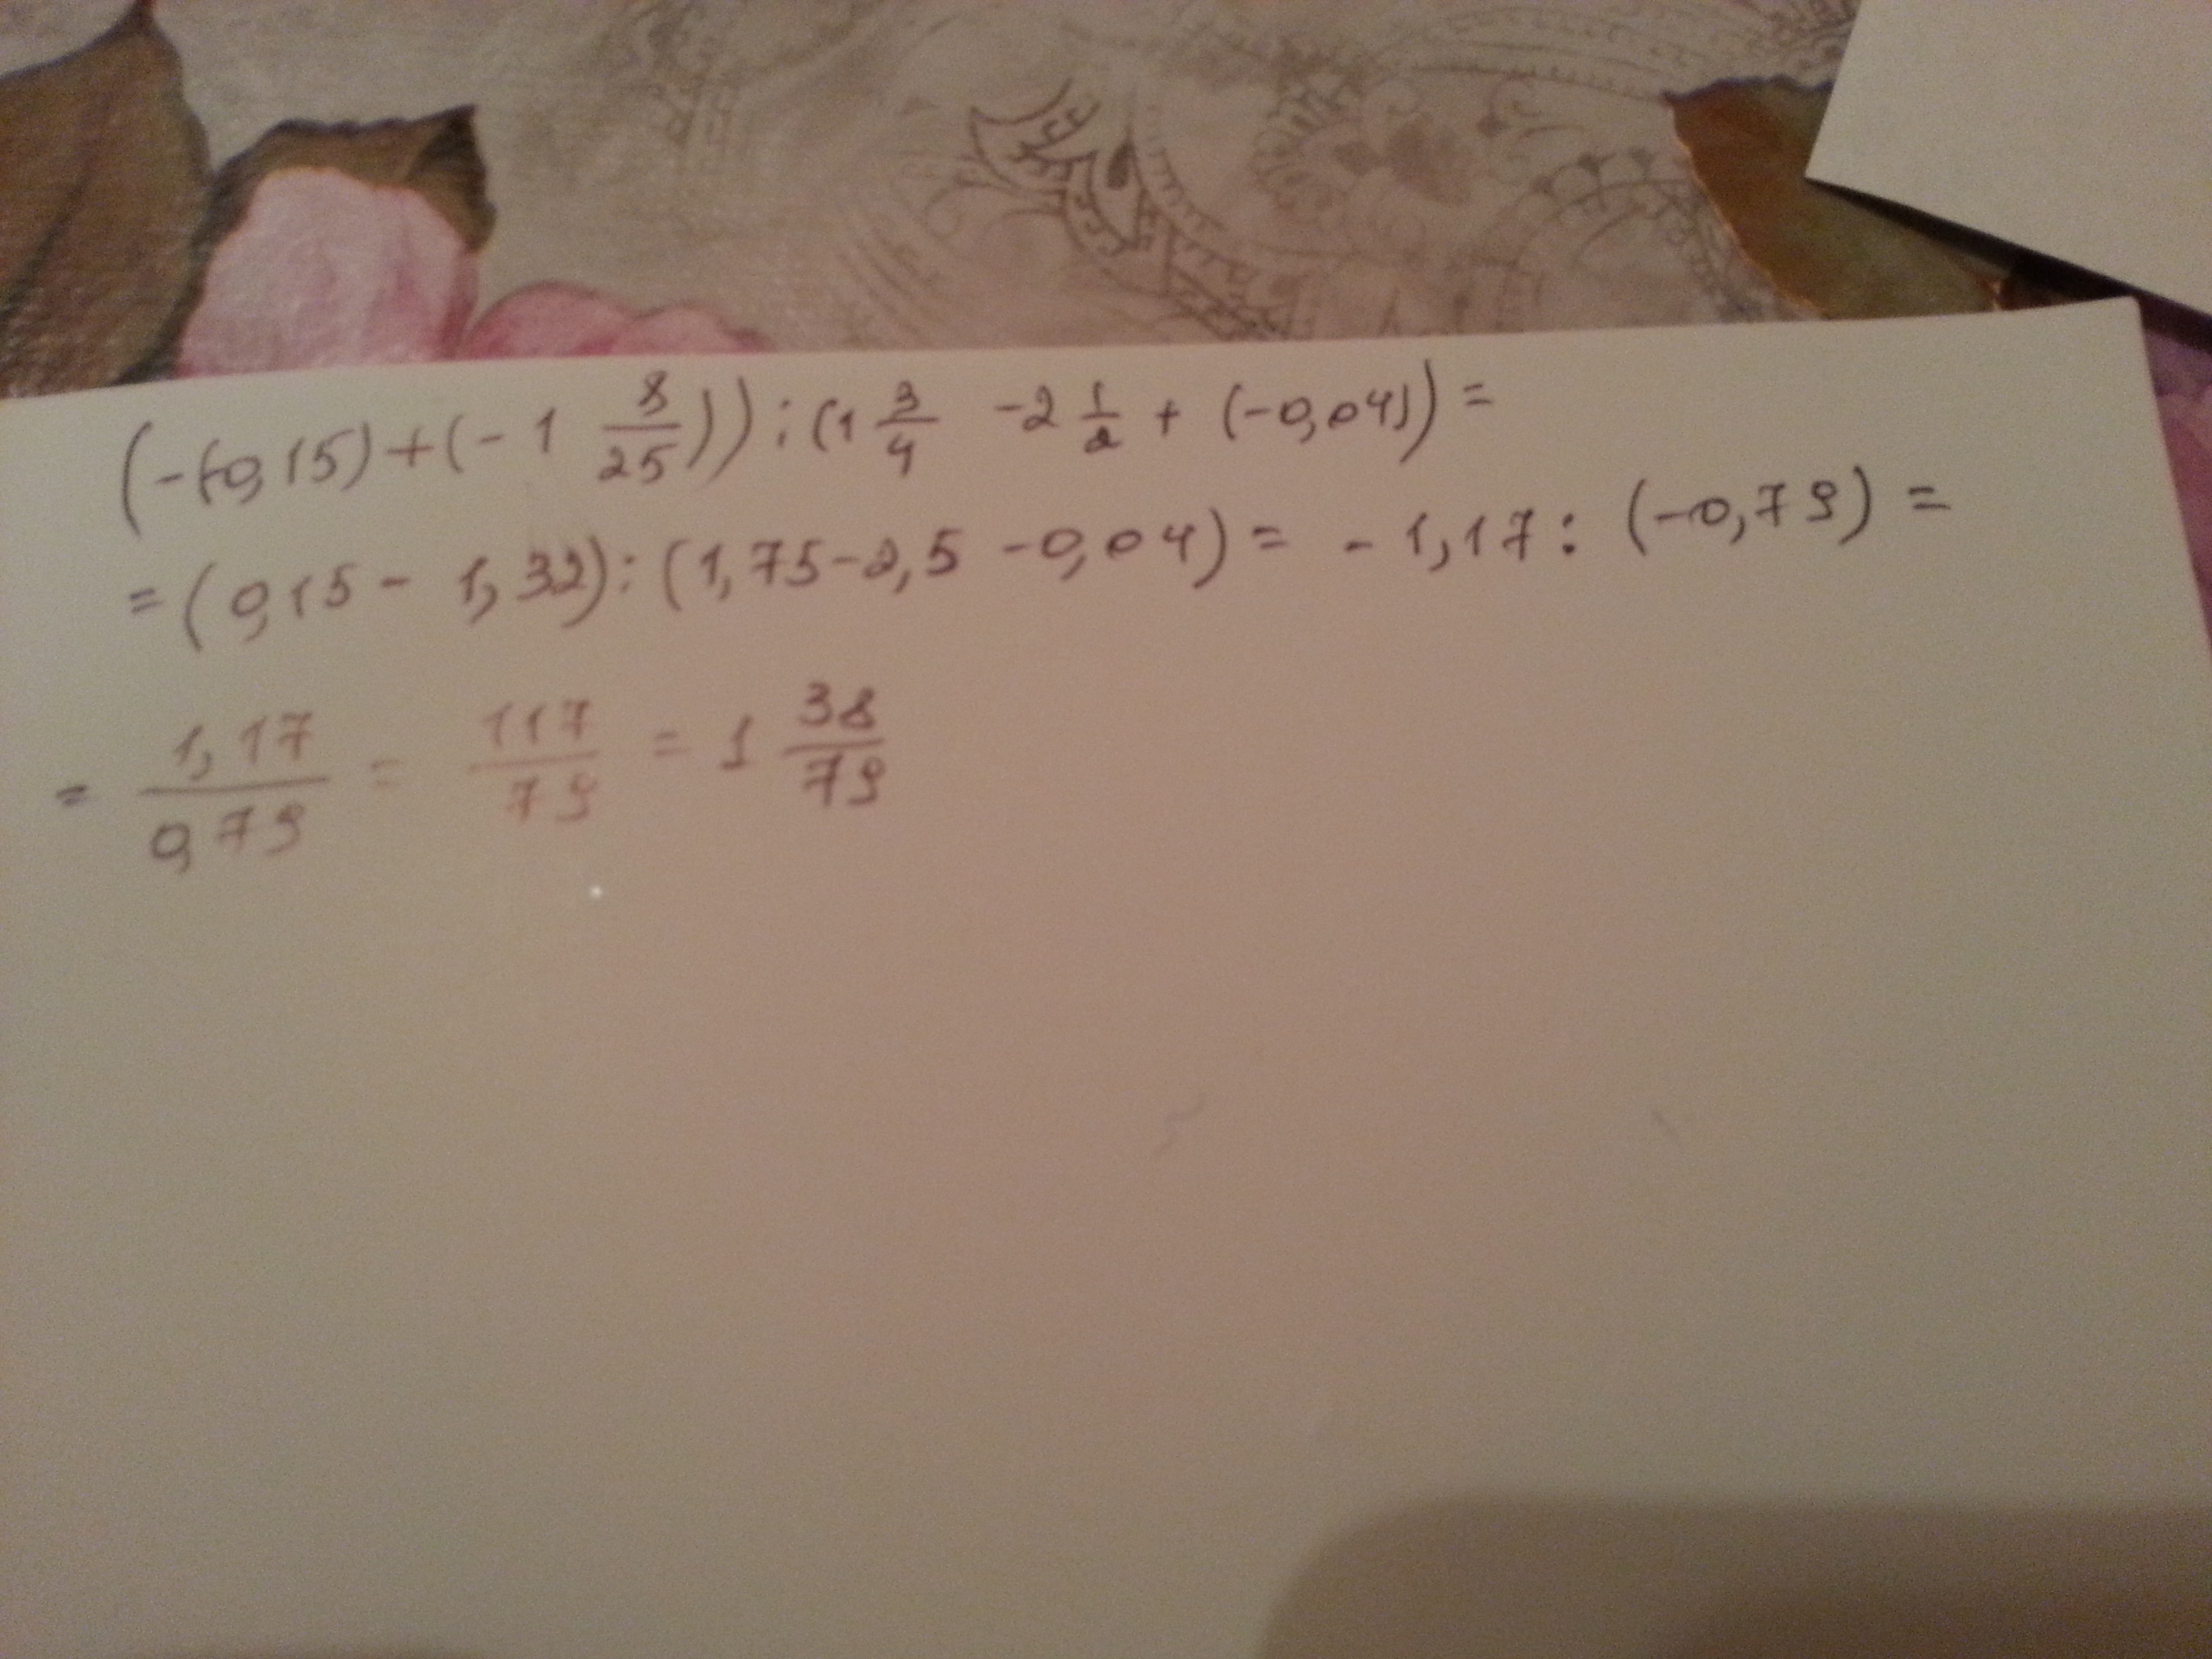 (-(-0,15)+(-1 8/25)):(1 3/4 -2 1/2 + (-0,04))=
=(0,15- 1,32):(1,75-2,5 -0,04)= -1,17:(-0,79)=
= 1,17/0,79 = 117/79 = 1 38/79